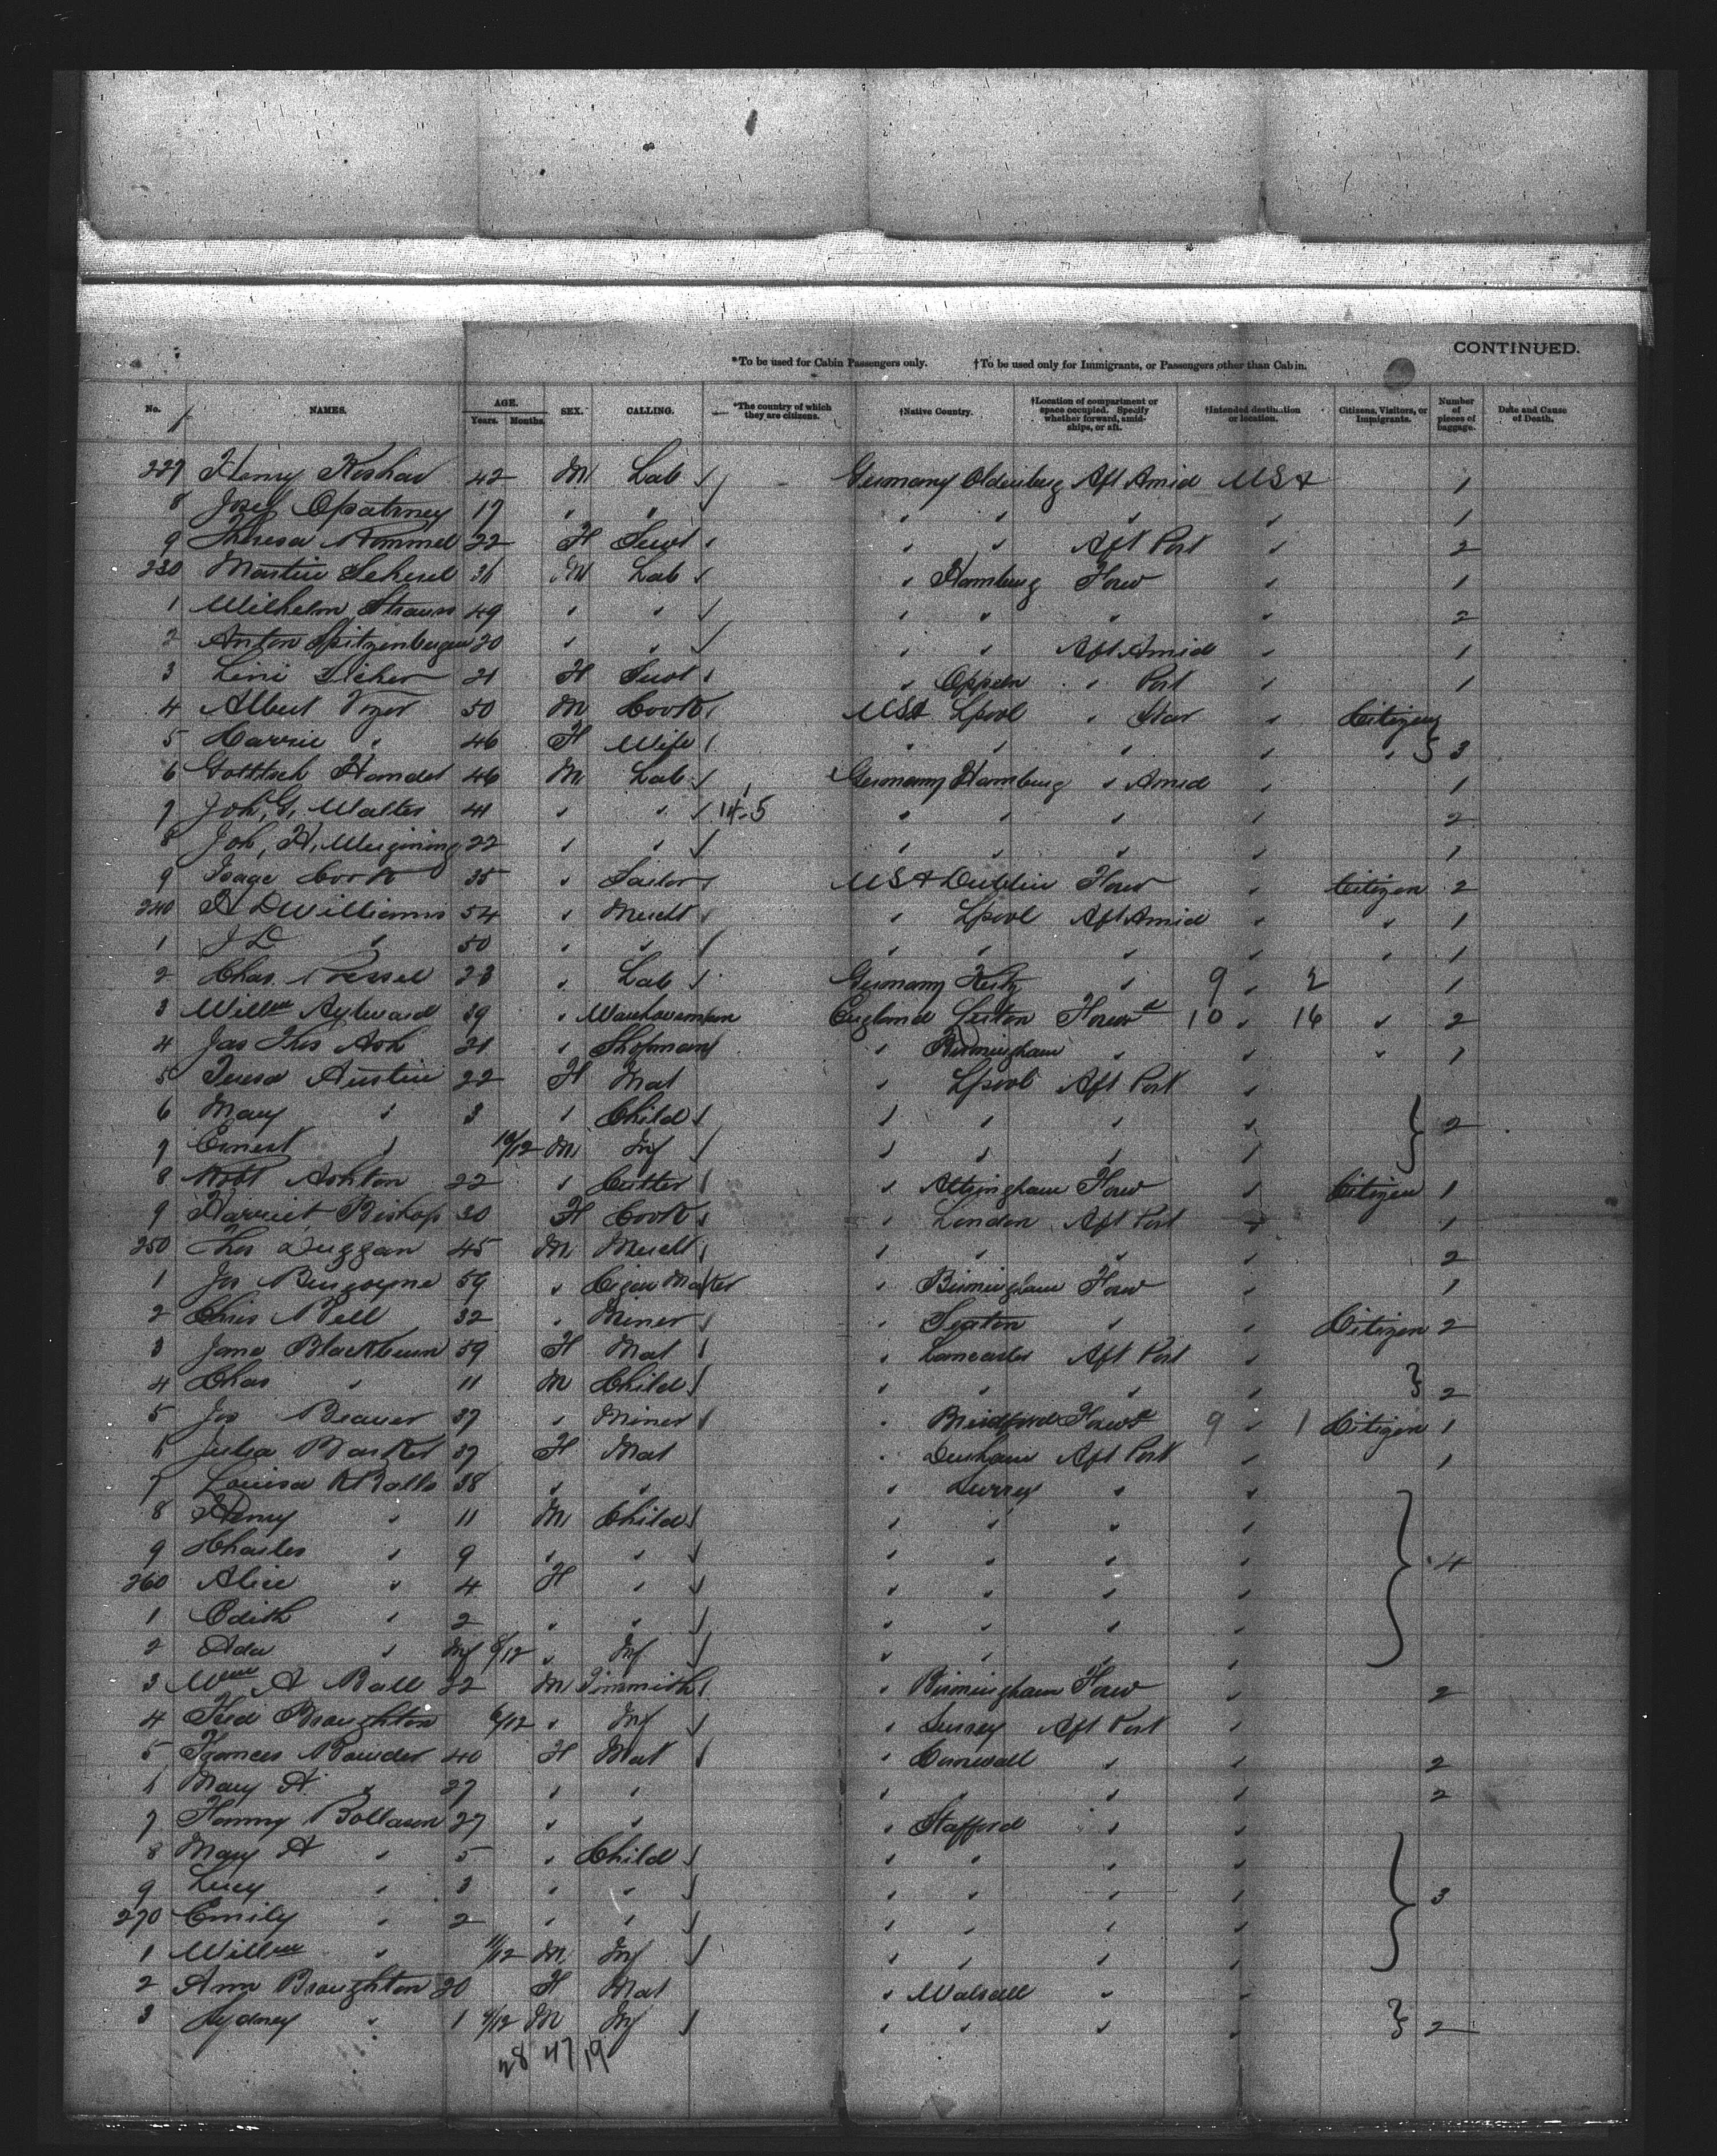 CONTINUED.
*To be used for Cabin Passengers only. †To be used only for Immigrants, or Passengers other than Cabin.
No. NAMES. AGE. Years. Months. SEX. CALLING. *The country of which they are citizens. †Native Country. †Location of compartment or space occupied. Specify whether forward, amidships, or aft. †Intended destination or location. Citizens, Visitors, or Immigrants. Number of pieces of baggage. Date and Cause of Death.
227 Henry 42 M Lab Germany Oldenburg Aft Amid USA 1
8 Josef Opatrney 17 " " " " " " 1
9 Theresa 22 F Servt " " Aft Port " 2
230 Martin 31 M Lab " Hamburg Forw " 1
1 Wilhelm Strauss 49 " " " " " " 2
2 Anton Spitzenberger 20 " " " " Aft Amid " 1
3 Lini 21 F Servt " Oppeln " Port " 1
4 Albert 50 M Cook USA Lpool " Star " Citizens
5 Carrie " 46 F Wife " " " " " } 3
6 Gottlich 46 M Lab Germany Hamburg " Amid " 1
7 Joh, G, Walter 41 " " 14-5 " " " " 2
8 Joh, H, 22 " " " " " " 1
9 Isaac Cook 35 " Sailor USA Dublin Forw " Citizen 2
240 H D Williams 54 " Mercht " Lpool Aft Amid " " 1
1 J D " 50 " " " " " " " 1
2 Chas. 23 " Lab Germany " 9 " 2 1
3 Willm Aylward 39 " Warehouseman England Forwd 10 " 16 " 2
4 Jas Thos Ash 21 " Shopman " Birmingham " " " 1
5 Teresa Austin 22 F Mat " Lpool Aft Port "
6 Mary " 3 " Child " " " " } 2
7 Ernest " 10/12 M Inf " " " "
8 Robt Ashton 22 " Cutter " Forw " Citizen 1
9 Harriet Bishop 30 F Cook " London Aft Port " 1
250 Thos Duggan 45 M Mercht " " " " 2
1 Jos Burgoyne 59 " Cigar Maker " Birmingham Forw " 1
2 Chris Bell 32 " Miner " " " Citizen 2
3 Jane Blackburn 59 F Mat " Lancaster Aft Port "
4 Chas " 11 M Child " " " " } 2
5 Jos 37 " Miner " Forwd 9 " 1 Citizen 1
6 Julia Barker 37 F Mat " Durham Aft Port " 1
7 Louisa 38 " " " Surrey " "
8 Henry " 11 M Child " " " "
9 Charles " 9 " " " " " " } 4
260 Alice " 4 F " " " " "
1 Edith " 2 " " " " " "
2 Ada " Inf 8/12 " Inf " " " "
3 Wm A Ball 22 M Tinsmith " Birmingham Forw " 2
4 Fred Broughton 6/12 " Inf " Surrey Aft Port "
5 Frances 40 F Mat " Cornwall " " 2
6 Mary A " 27 " " " " " " 2
7 Fanny Bollason 27 " " " Stafford " "
8 Mary A " 5 " Child " " " "
9 Lucy " 3 " " " " " " } 3
270 Emily " 2 " " " " " "
1 Willm " 11/12 M Inf " " " "
2 Ann Broughton 20 F Mat " Walsall " "
3 Sydney " 1 4/12 M Inf " " " " } 2
28 47 19